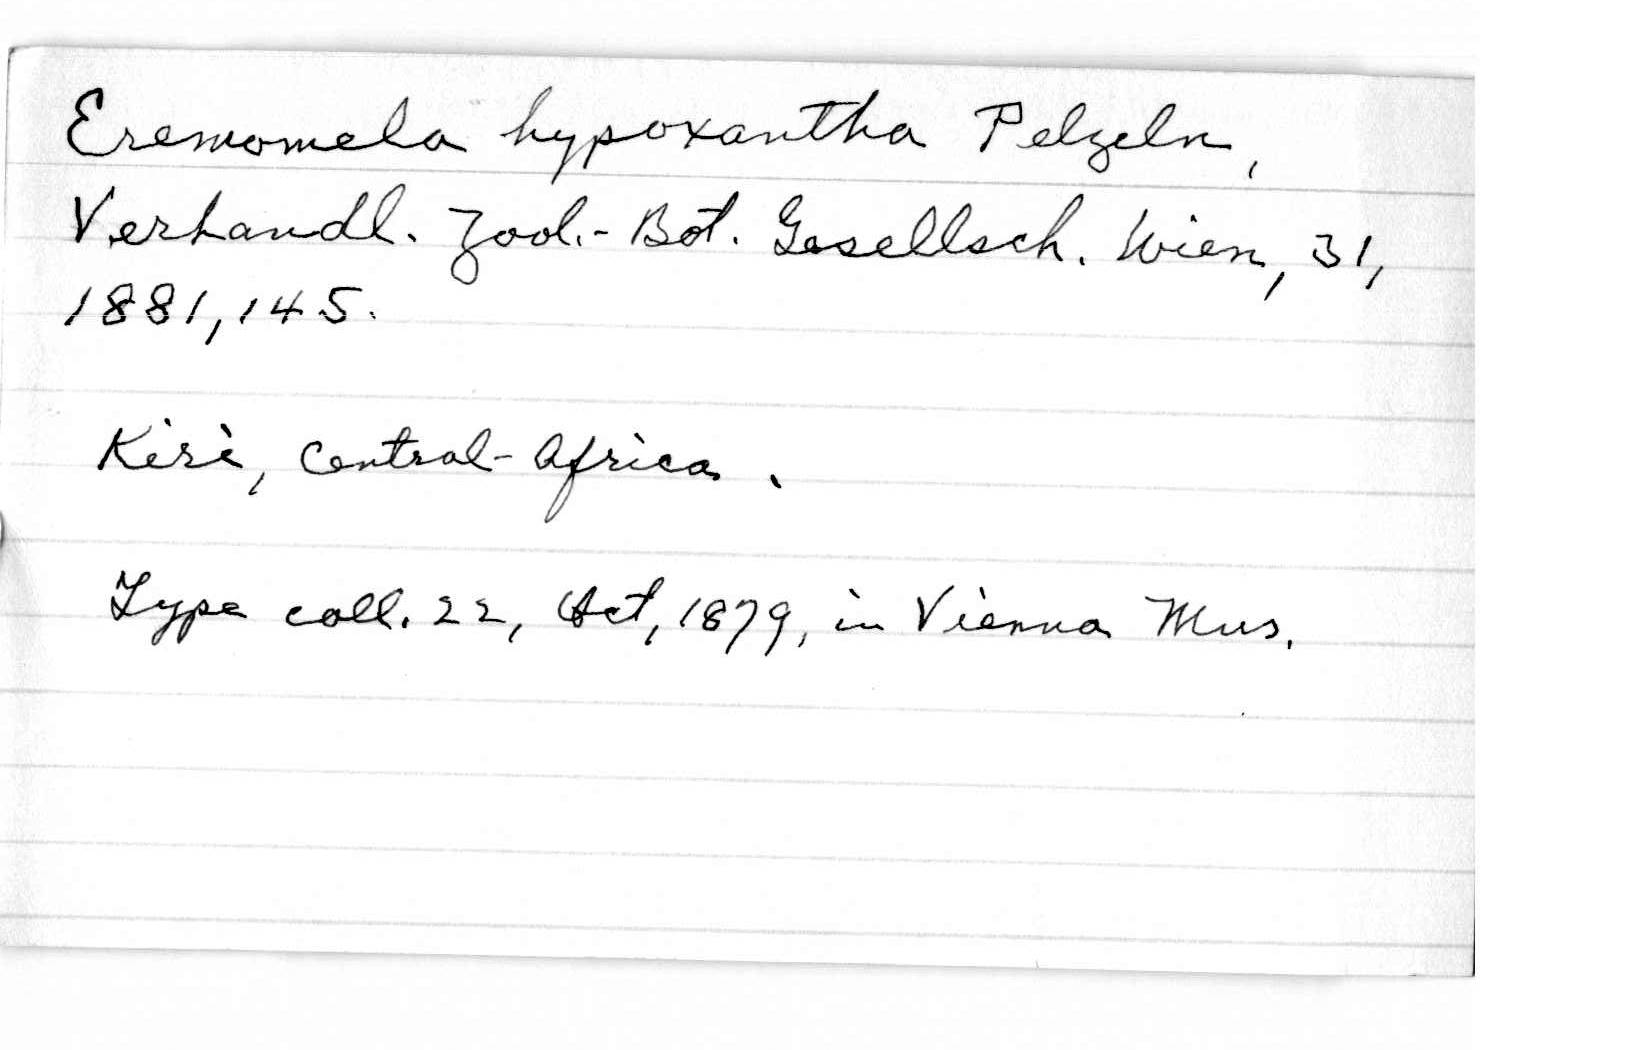 Eremomela hypoxantha Pelzeln,
Verhandl. Zool.-Bot. Gesellsch. Wien, 31,
1881, 145.
Kiri, Central-Africa.
Type coll. 22, Oct, 1879, in Vienna Mus.